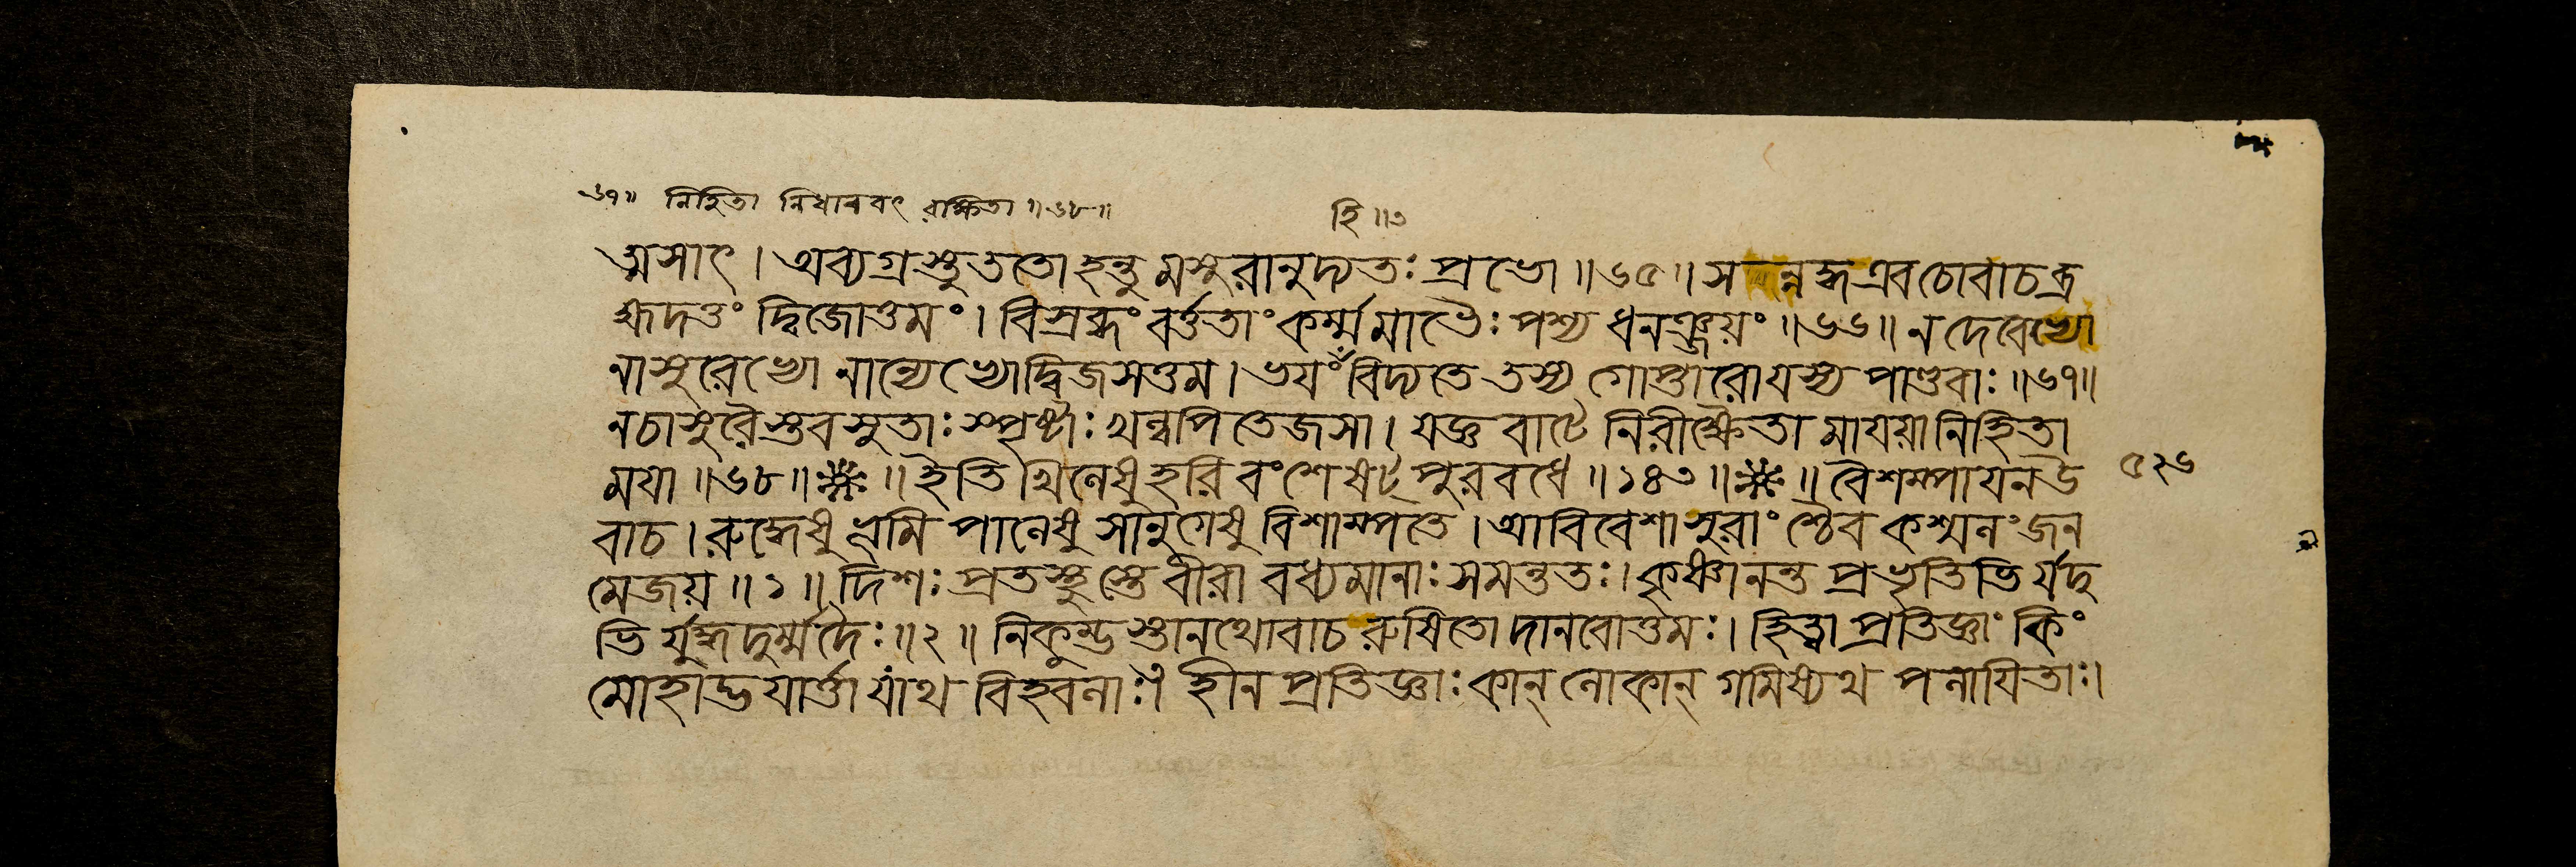 ৬৭॥ নিহিতা নিধানবৎ রক্ষিতা ॥৬৮॥
হি ॥৩
ঞসাৎ। অব্যগ্রস্তু ততো হন্তুমসুরানুদ্যতঃ প্রভো ॥৬৫॥ স ন্নদ্ধ এব চোবাচ ব্র
হ্মদত্তং দ্বিজোত্তমং। বিস্রব্ধং বর্ত্ততাং কর্ম্ম মাভৈঃ পশ্য ধনঞ্জয়ং ॥৬৬॥ ন দেবেভ্যো
নাসুরেভ্যো নান্যেভ্যো দ্বিজসত্তম। ভযং বিদ্যতে তস্য গোপ্তারো যস্য পাণ্ডবাঃ ॥৬৭॥
ন চাসুরৈস্তব সুতাঃ স্পৃষ্টাঃ খল্বপি তেজসা। যজ্ঞবাটে নিরীক্ষৈতা মাযয়া নিহিতা
ময়া ॥৬৮॥ ॥ ইতি খিলেষু হরিবংশে ষট্পুরবধে ॥১৪৩॥ ॥ বৈশম্পাযন উ
৫২৬
বাচ। রুদ্ধেষু ভূমিপালেষু সানুগেষু বিশাম্পতে। আবিবেশাসুরাংশ্চৈব কশ্মলং জন
মেজয় ॥১॥ দিশঃ প্রতস্থুস্তে বীরা বধ্যমানাঃ সমন্ততঃ। কৃষ্ণানন্তপ্রভৃতিভির্যদু
ভির্যুদ্ধদুর্ম্মদৈঃ ॥২॥ নিকুম্ভস্তানথোবাচ রুষিতো দানবোত্তমঃ। ভিত্ত্বা প্রতিজ্ঞাং কিং
মোহাদ্ভযার্ত্তা যাথ বিহ্বলাঃ। হীনপ্রতিজ্ঞাঃ কান্ লোকান্ গমিষ্যথ পলাযিতাঃ।